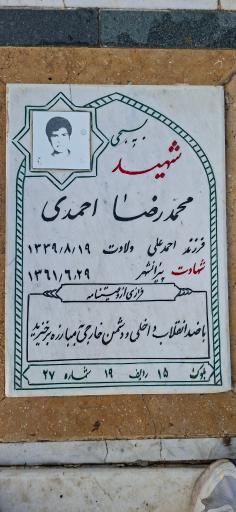 بسمه تعالی
شهید
محمدرضا احمدی
فرزند احمدعلی ولادت ۱۳۳۹/۸/۱۹
شهادت پیرانشهر ۱۳۶۱/۶/۲۹
فرازی از وصیتنامه
با ضد انقلاب داخلی و دشمن خارجی به مبارزه برخیزید
بلوک ۱۵ ردیف ۱۹ شماره ۲۷